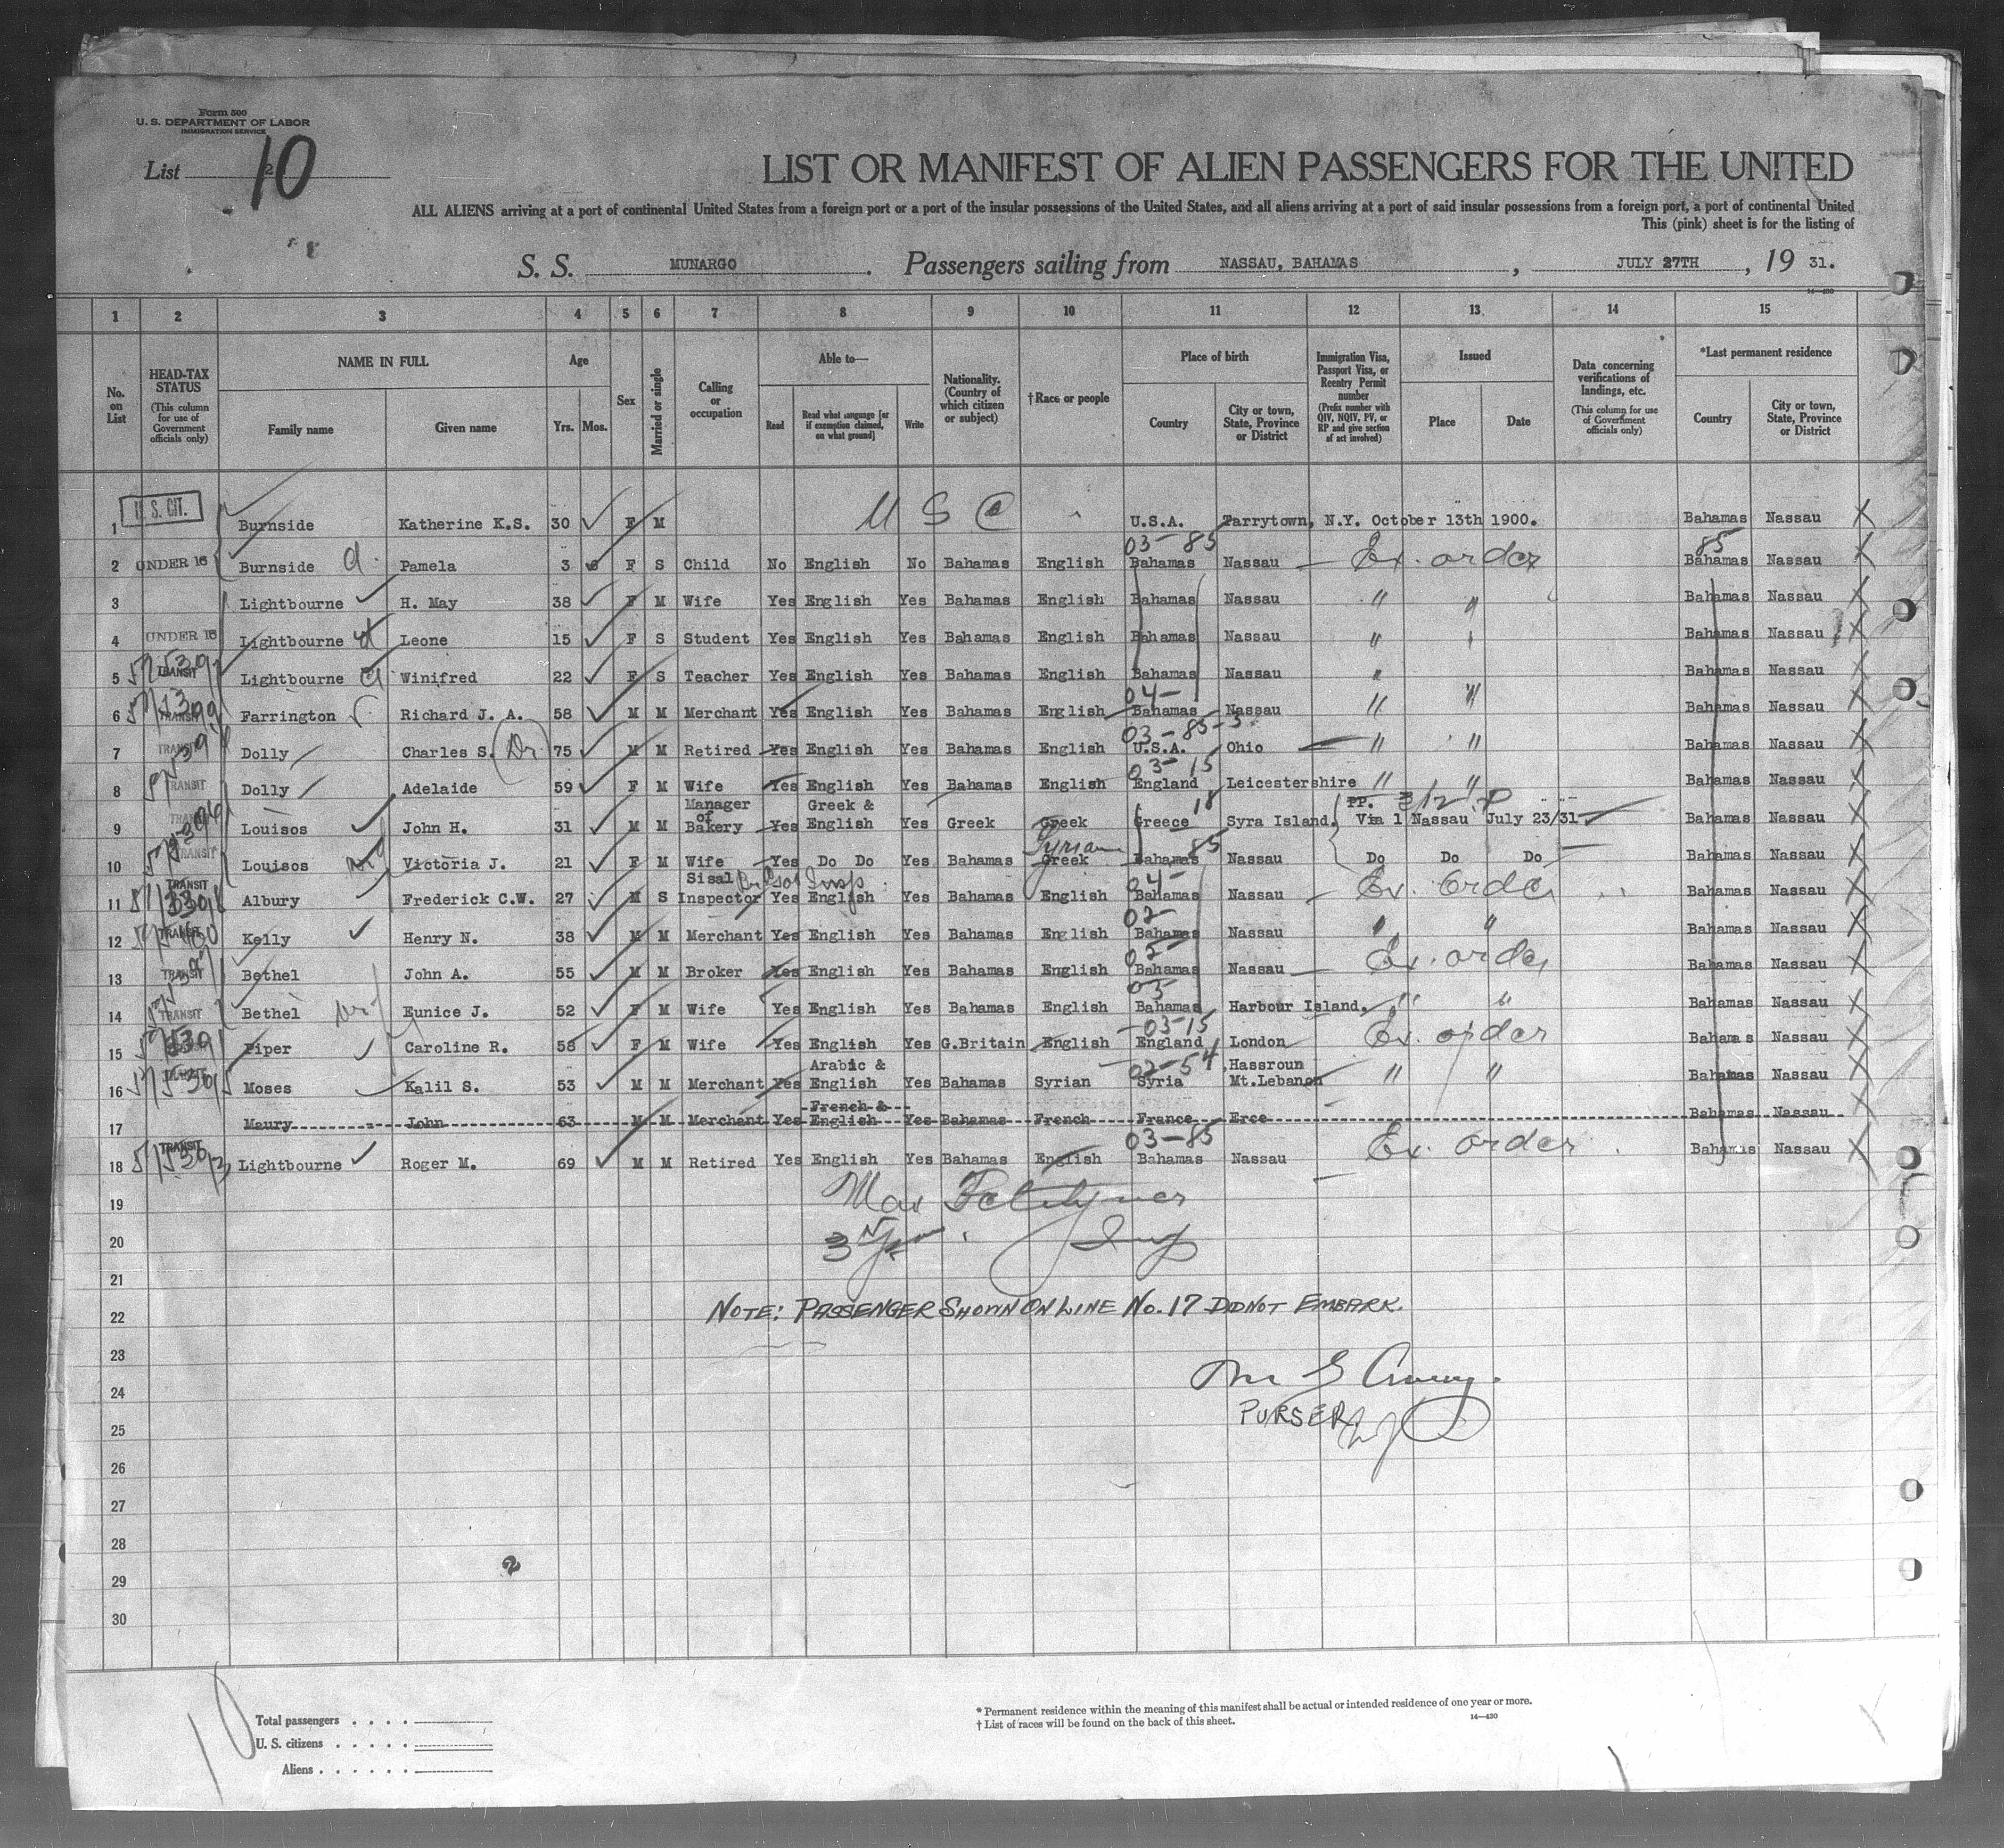 Form 500
U. S. DEPARTMENT OF LABOR
IMMIGRATION SERVICE
List 2 10
LIST OR MANIFEST OF ALIEN PASSENGERS FOR THE UNITED
ALL ALIENS arriving at a port of continental United States from a foreign port or a port of the insular possessions of the United States, and all aliens arriving at a port of said insular possessions from a foreign port, a port of continental United
This (pink) sheet is for the listing of
S. S. MUNARGO . Passengers sailing from NASSAU, BAHAMAS , JULY 27TH , 19 31.
14—430
1 2 3 4 5 6 7 8 9 10 11 12 13 14 15
No. on List
HEAD-TAX STATUS (This column for use of Government officials only)
NAME IN FULL Family name Given name
Age Yrs. Mos.
Sex
Married or single
Calling or occupation
Able to— Read Read what language [or if exemption claimed, on what ground] Write
Nationality. (Country of which citizen or subject)
†Race or people
Place of birth Country City or town, State, Province or District
Immigration Visa, Passport Visa, or Reentry Permit number (Prefix number with QIV, NQIV, PV, or RP and give section of act involved)
Issued Place Date
Data concerning verifications of landings, etc. (This column for use of Government officials only)
*Last permanent residence Country City or town, State, Province or District
1 U. S. CIT. Burnside Katherine K.S. 30 F M U S C U.S.A. Tarrytown, N.Y. October 13th 1900. Bahamas Nassau X
03-85 85
2 UNDER 16 Burnside d. Pamela 3 6 F S Child No English No Bahamas English Bahamas Nassau Ex. order Bahamas Nassau X
3 Lightbourne H. May 38 F M Wife Yes English Yes Bahamas English Bahamas Nassau " " Bahamas Nassau X
4 UNDER 16 Lightbourne d Leone 15 F S Student Yes English Yes Bahamas English Bahamas Nassau " Bahamas Nassau X
5 TRANSIT Lightbourne d Winifred 22 F S Teacher Yes English Yes Bahamas English Bahamas Nassau " Bahamas Nassau X
04-
6 TRANSIT Farrington Richard J. A. 58 M M Merchant Yes English Yes Bahamas English Bahamas Nassau " " Bahamas Nassau X
03-85-3
7 TRANSIT Dolly Charles S. (Dr) 75 M M Retired Yes English Yes Bahamas English U.S.A. Ohio " " Bahamas Nassau X
03-15
8 TRANSIT Dolly Adelaide 59 F M Wife Yes English Yes Bahamas English England Leicestershire " " Bahamas Nassau X
Manager of Greek & 18 PP. 3/12 P
9 TRANSIT Louisos John H. 31 M M Bakery Yes English Yes Greek Greek Greece Syra Island. Via 1 Nassau July 23/31 Bahamas Nassau X
Syrian 85
10 TRANSIT Louisos Victoria J. 21 F M Wife Yes Do Do Yes Bahamas Greek Bahamas Nassau Do Do Do Bahamas Nassau X
Sisal Insp 04-
11 TRANSIT Albury Frederick C.W. 27 M S Inspector Yes English Yes Bahamas English Bahamas Nassau Ex. Order Bahamas Nassau X
02-
12 TRANSIT Kelly Henry N. 38 M M Merchant Yes English Yes Bahamas English Bahamas Nassau " " Bahamas Nassau X
02-
13 TRANSIT Bethel John A. 55 M M Broker Yes English Yes Bahamas English Bahamas Nassau Ex. order Bahamas Nassau X
03
14 TRANSIT Bethel wf Eunice J. 52 F M Wife Yes English Yes Bahamas English Bahamas Harbour Island. " " Bahamas Nassau X
-03-15
15 Piper Caroline R. 58 F M Wife Yes English Yes G.Britain English England London Ex. order Bahamas Nassau X
Arabic & 02-54 Hassroun
16 TRANSIT Moses Kalil S. 53 M M Merchant Yes English Yes Bahamas Syrian Syria Mt.Lebanon " " Bahamas Nassau X
French &
17 Maury John 63 M M Merchant Yes English Yes Bahamas French France Erce Bahamas Nassau X
03-85
18 TRANSIT Lightbourne Roger M. 69 M M Retired Yes English Yes Bahamas English Bahamas Nassau Ex. order Bahamas Nassau X
19
20
21
22 NOTE: PASSENGER SHOWN ON LINE No. 17 DID NOT EMBARK.
23
24
25 PURSER
26
27
28
29
30
10
Total passengers . . . .
U. S. citizens . . . . .
Aliens . . . . . .
* Permanent residence within the meaning of this manifest shall be actual or intended residence of one year or more.
† List of races will be found on the back of this sheet.
14—430